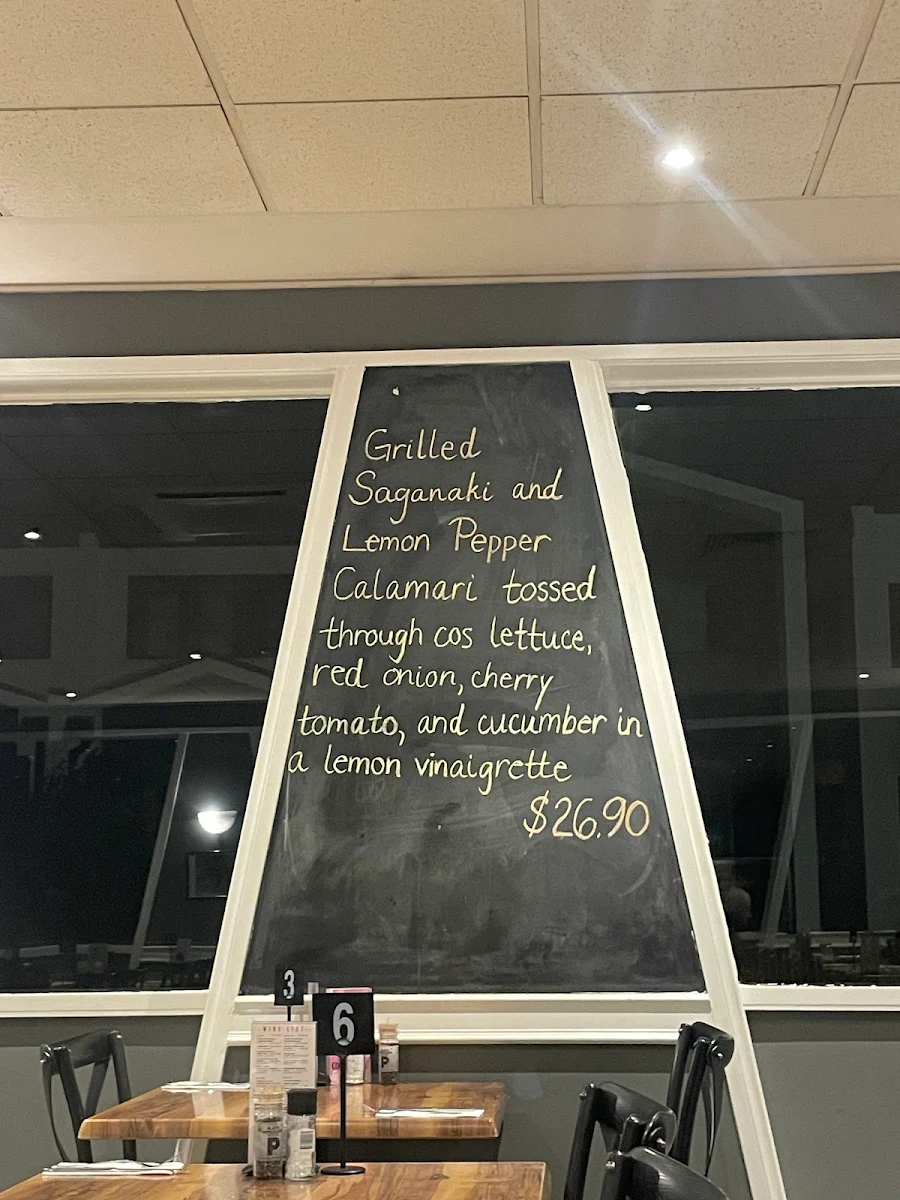 Grilled
Saganaki and
Lemon Pepper
Calamari tossed
through cos lettuce,
red onion, cherry
tomato, and cucumber in
a lemon vinaigrette
$26.90
3
6
WINE LIST
P
P